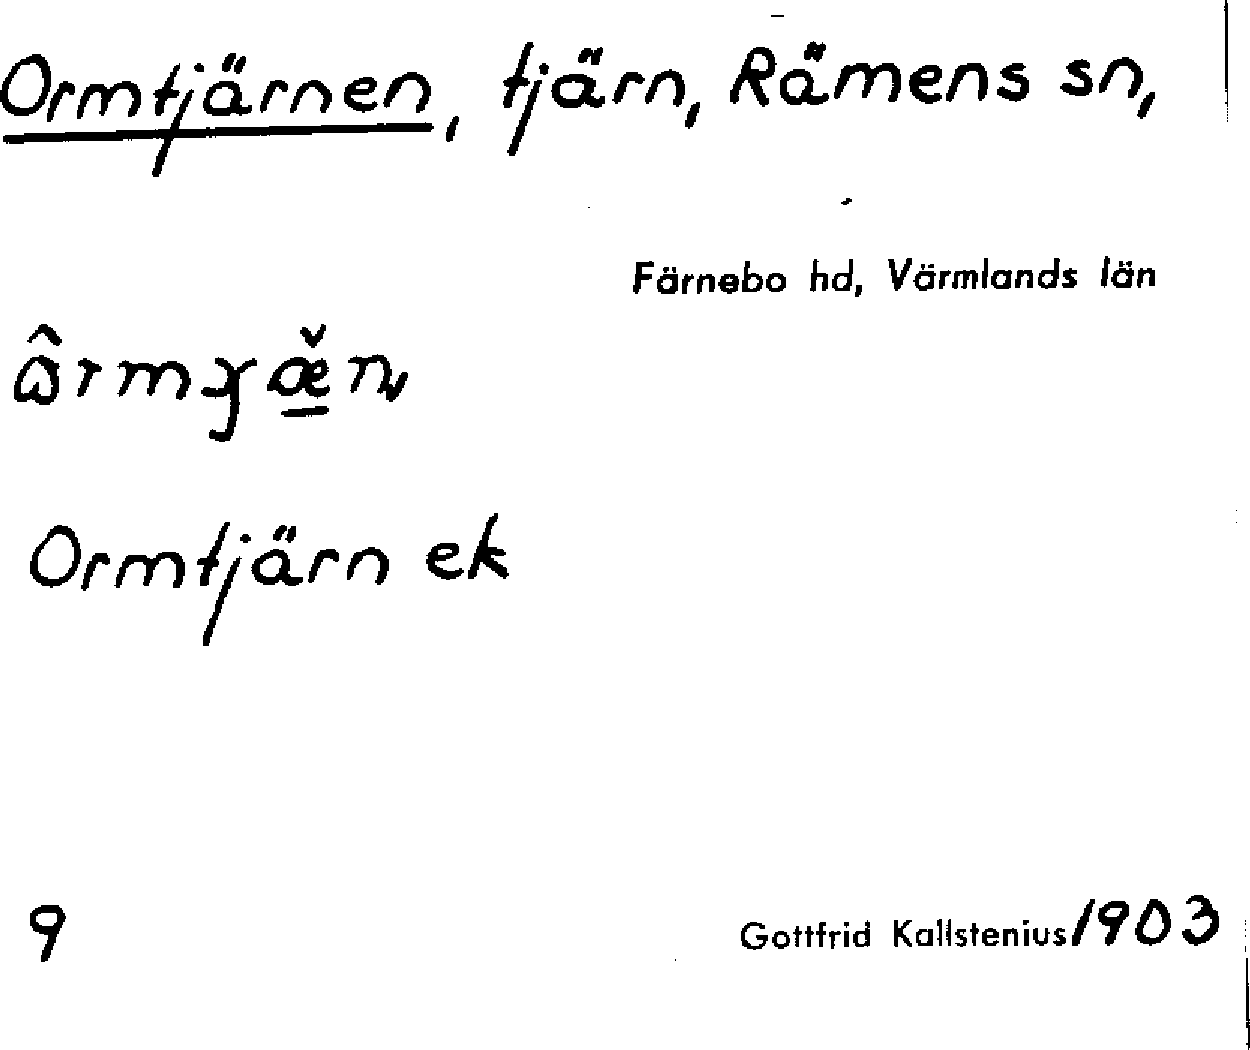 Ormtjärnen, tjärn, Rämens sn,
Färnebo hd, Värmlands län
Ormtjärn ek
9
Gottfrid Kallstenius/1903